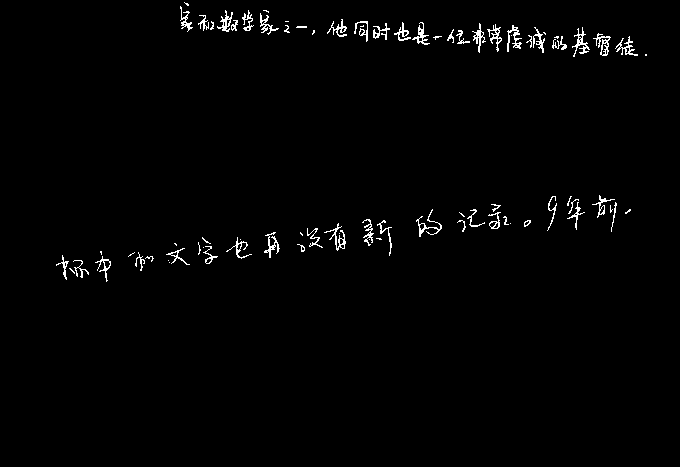 家和数学家之一，他同时也是一位非常虔诚的基督徒.
标本和文字也再没有新的记录。9年前.